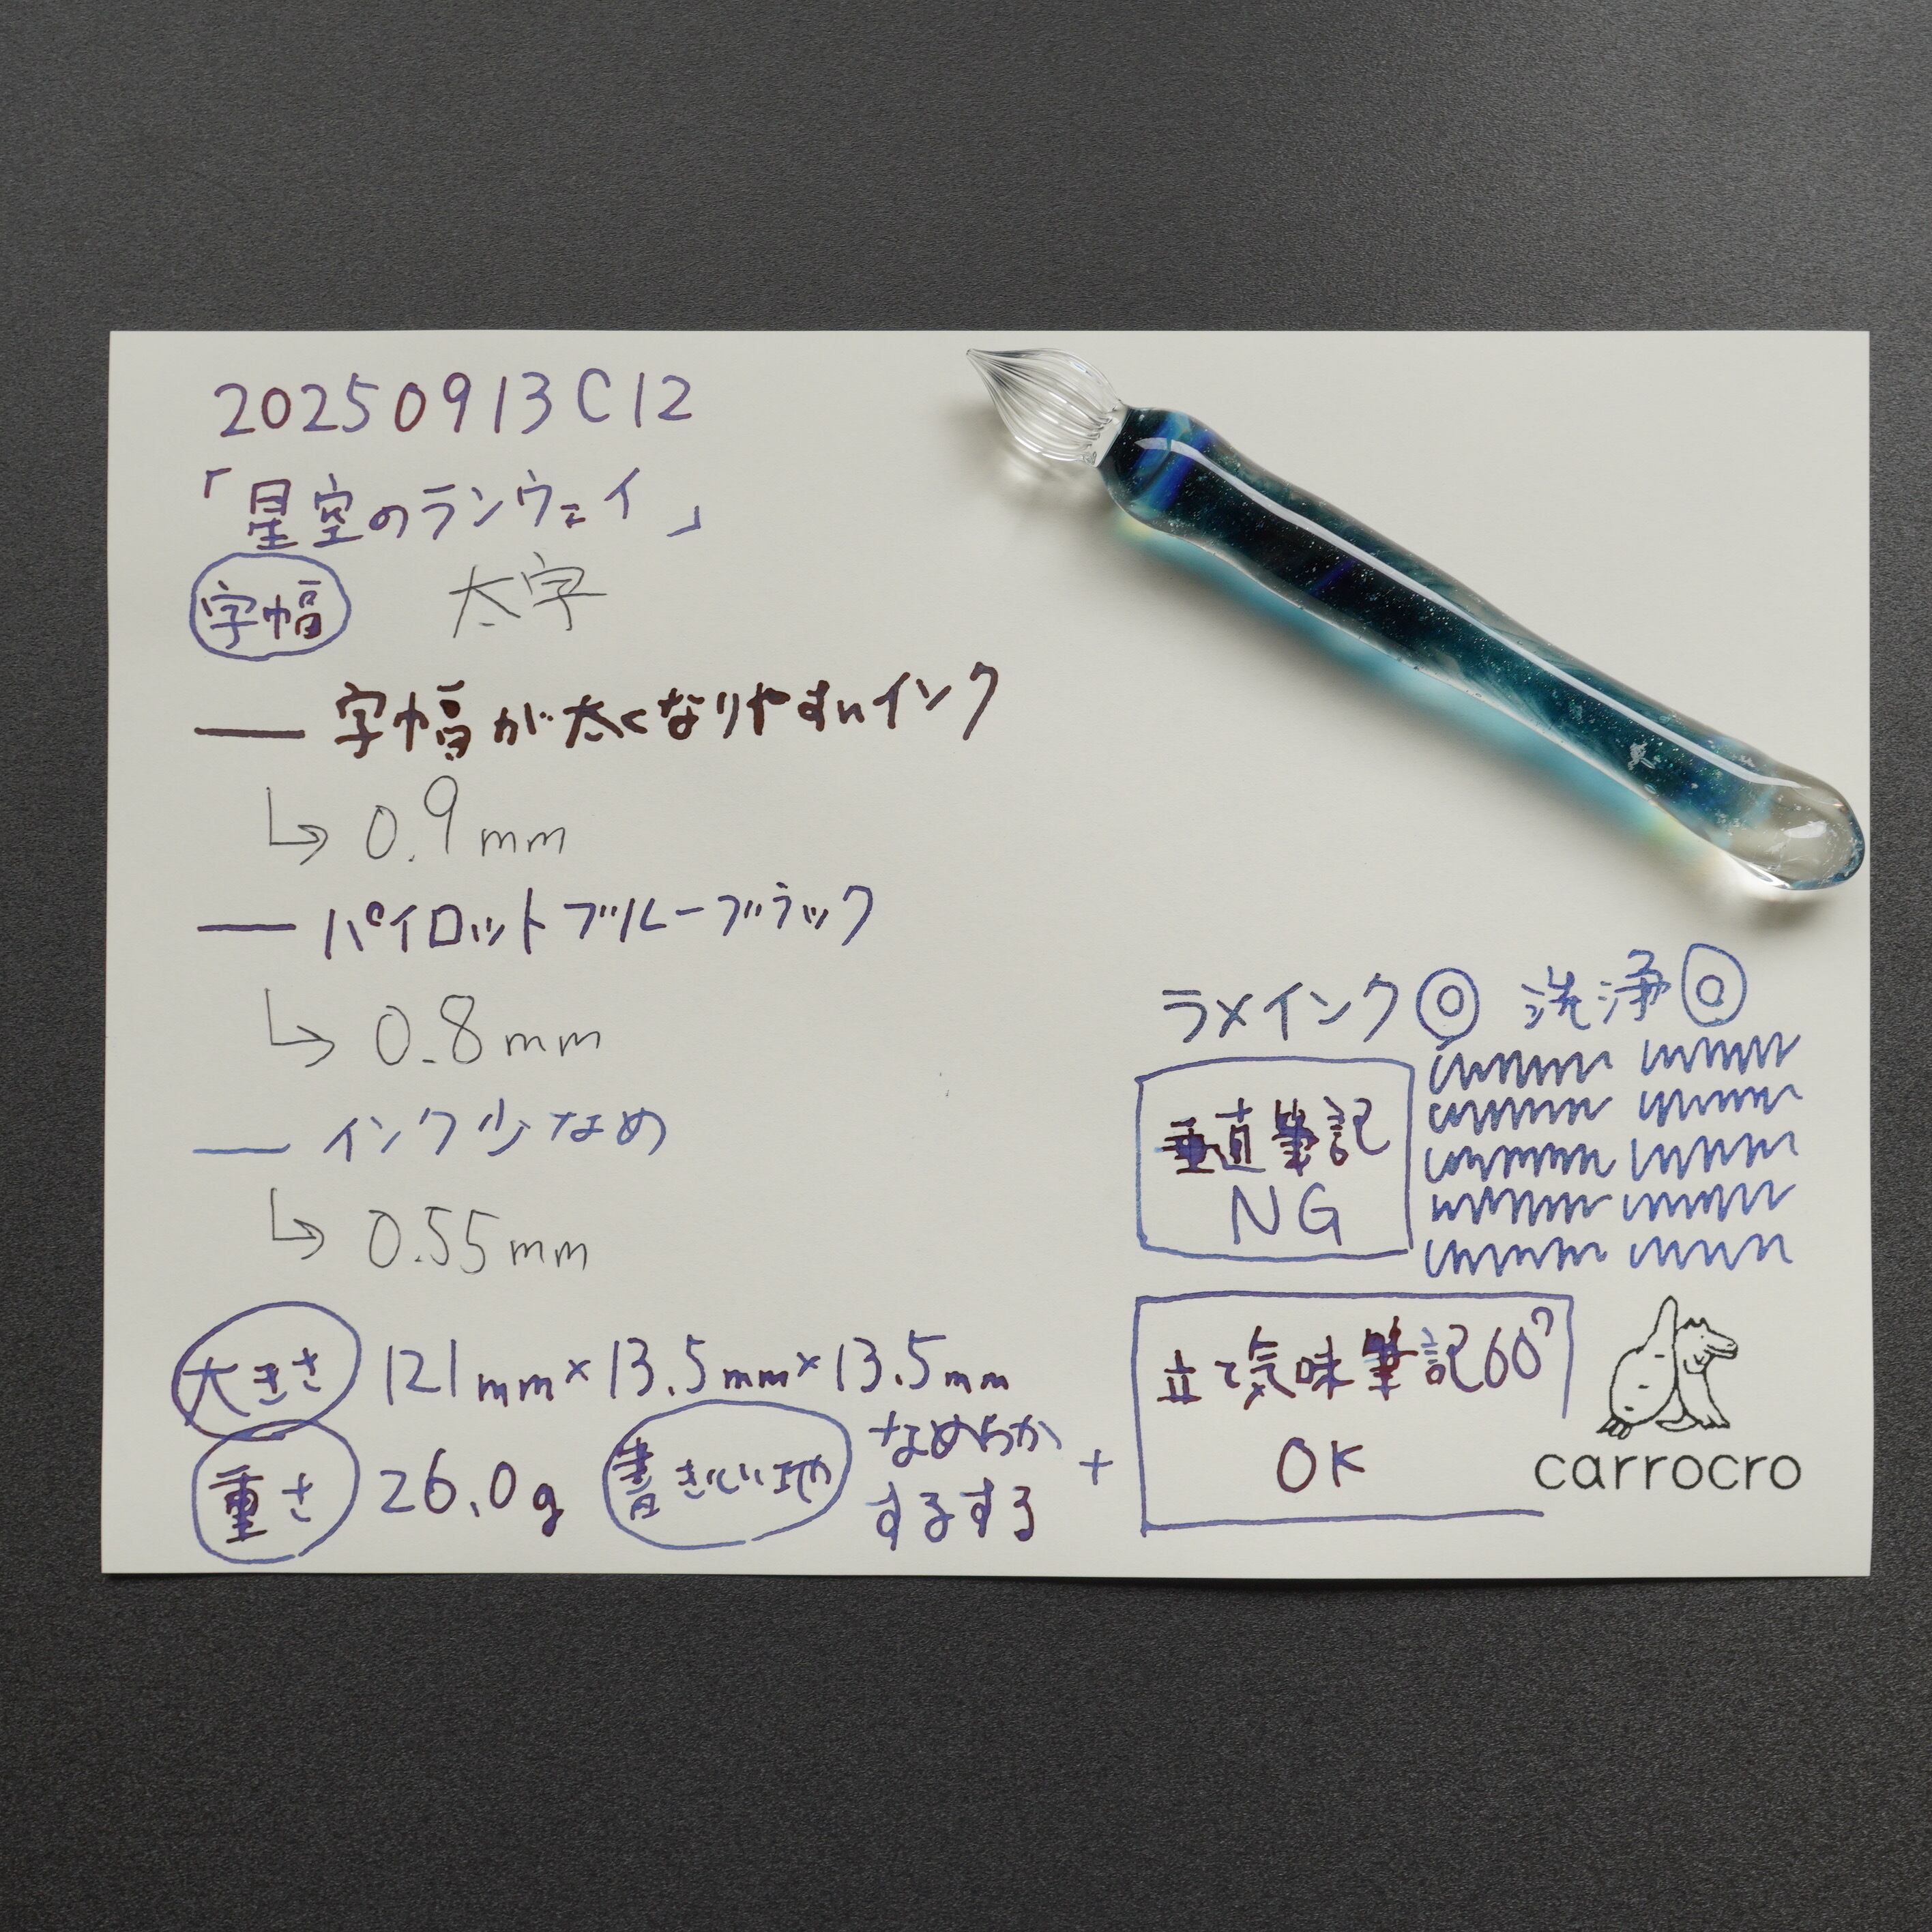 20250913C12
「星空のランウェイ」
字幅 太字
字幅が太くなりやすいインク
0.9mm
パイロットブルーブラック
0.8mm
インク少なめ
0.55mm
大きさ 121mm×13.5mm×13.5mm
重さ 26.0g 書き心地 なめらか
するする
+
ラメインク◎ 洗浄◎
垂直筆記
NG
立て気味筆記60°
OK
carrocro